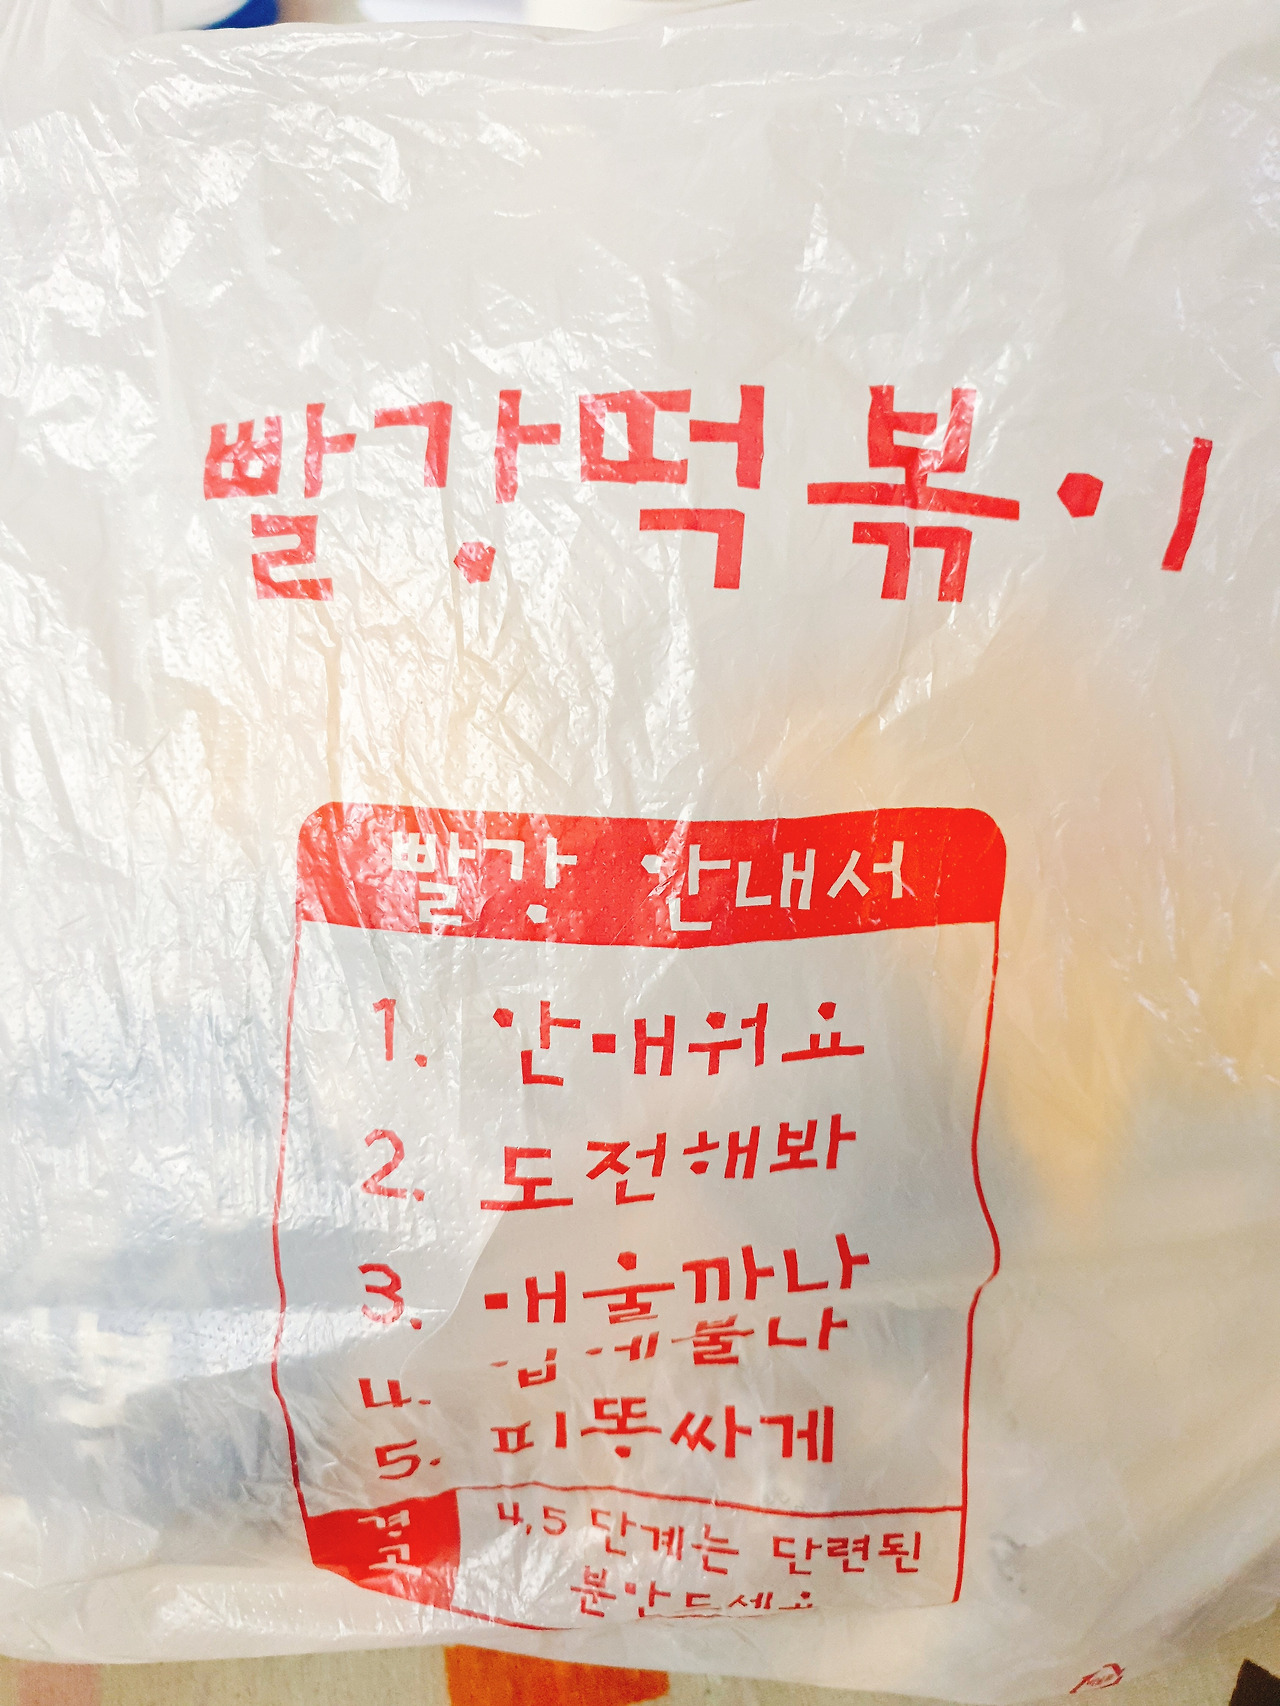 빨강떡볶이
빨강 안내서
1. 안매워요
2. 도전해봐
3. 매울까나
4. 입에불나
5. 피똥싸게
경고
4,5 단계는 단련된
분만 드세요